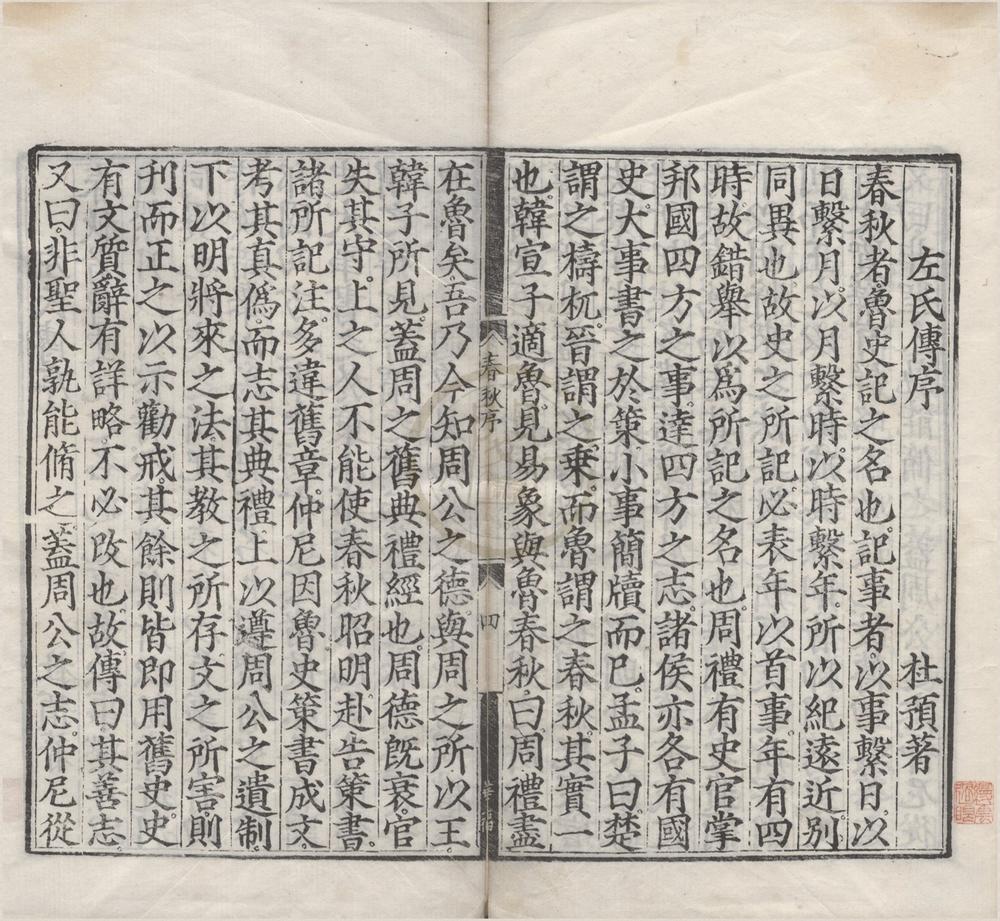 左氏傳序
杜預著
春秋者魯史記之名也記事者以事繫日以
日繫月以月繫時以時繫年所以紀遠近別
同異也故史之所記必表年以首事年有四
時故錯舉以為所記之名也周禮有史官掌
邦國四方之事達四方之志諸侯亦各有國
史大事書之於策小事簡牘而已孟子曰楚
謂之檮杌晉謂之乘而魯謂之春秋其實一
也韓宣子適魯見易象與魯春秋曰周禮盡
春秋序
四
在魯矣吾乃今知周公之德與周之所以王
韓子所見蓋周之舊典禮經也周德既衰官
失其守上之人不能使春秋昭明赴告策書
諸所記注多違舊章仲尼因魯史策書成文
考其真偽而志其典禮上以遵周公之遺制
下以明將來之法其教之所存文之所害則
刊而正之以示勸戒其餘則皆即用舊史史
有文質辭有詳略不必改也故傳曰其善志
又曰非聖人孰能脩之蓋周公之志仲尼從